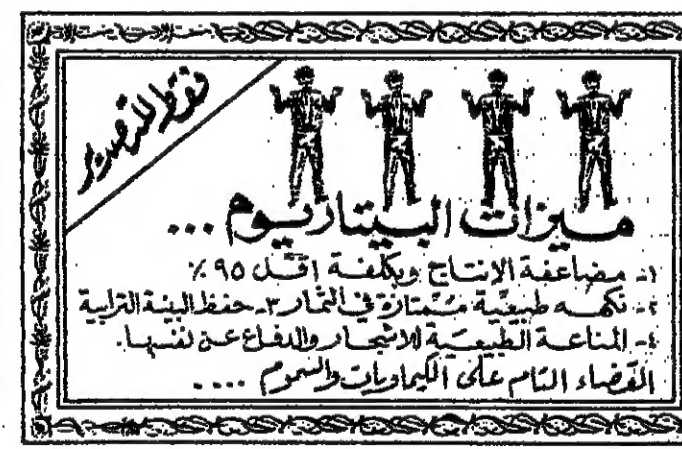 فقط للتصدير
ميزات البيتازيوم ...
١- مضاعفة الإنتاج وبكلفة اقل ٩٥٪
٢- نكهه طبيعية متمتازة في الثمار ٣- حفظ البيئة الترابية
٤- المناعة الطبيعية للاشجار والدفاع عن نفسها.
القضاء التام على الكيماويات والسموم ....